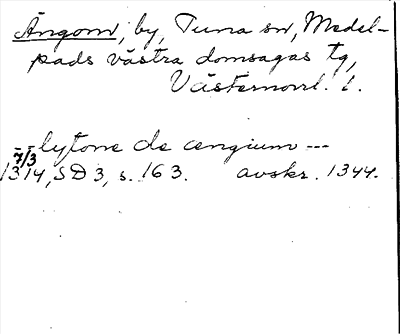 Ängom, by, Tuna sn, Medel-
pads västra domsagas tg,
Västernorrl. l.
-- lytone de cengium ---
7/3
1314, SD 3, s. 163. avskr. 1344.